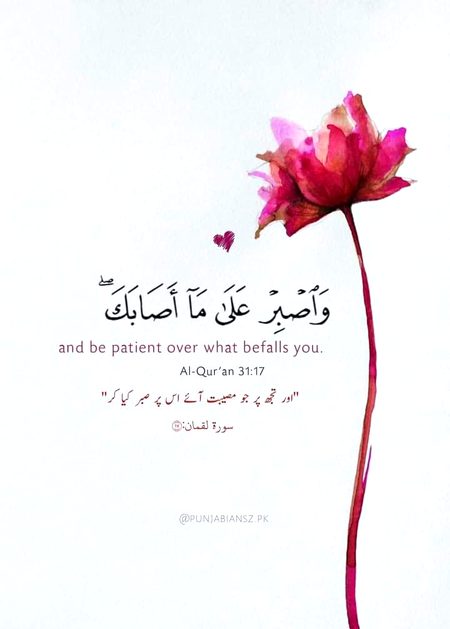 وَٱصۡبِرۡ عَلَىٰ مَآ أَصَابَكَۖ
and be patient over what befalls you.
Al-Qur'an 31:17
"اور تجھ پر جو مصیبت آئے اس پر صبر کیا کر"
سورة لقمان:۝١٧
@PUNJABIANSZ.PK